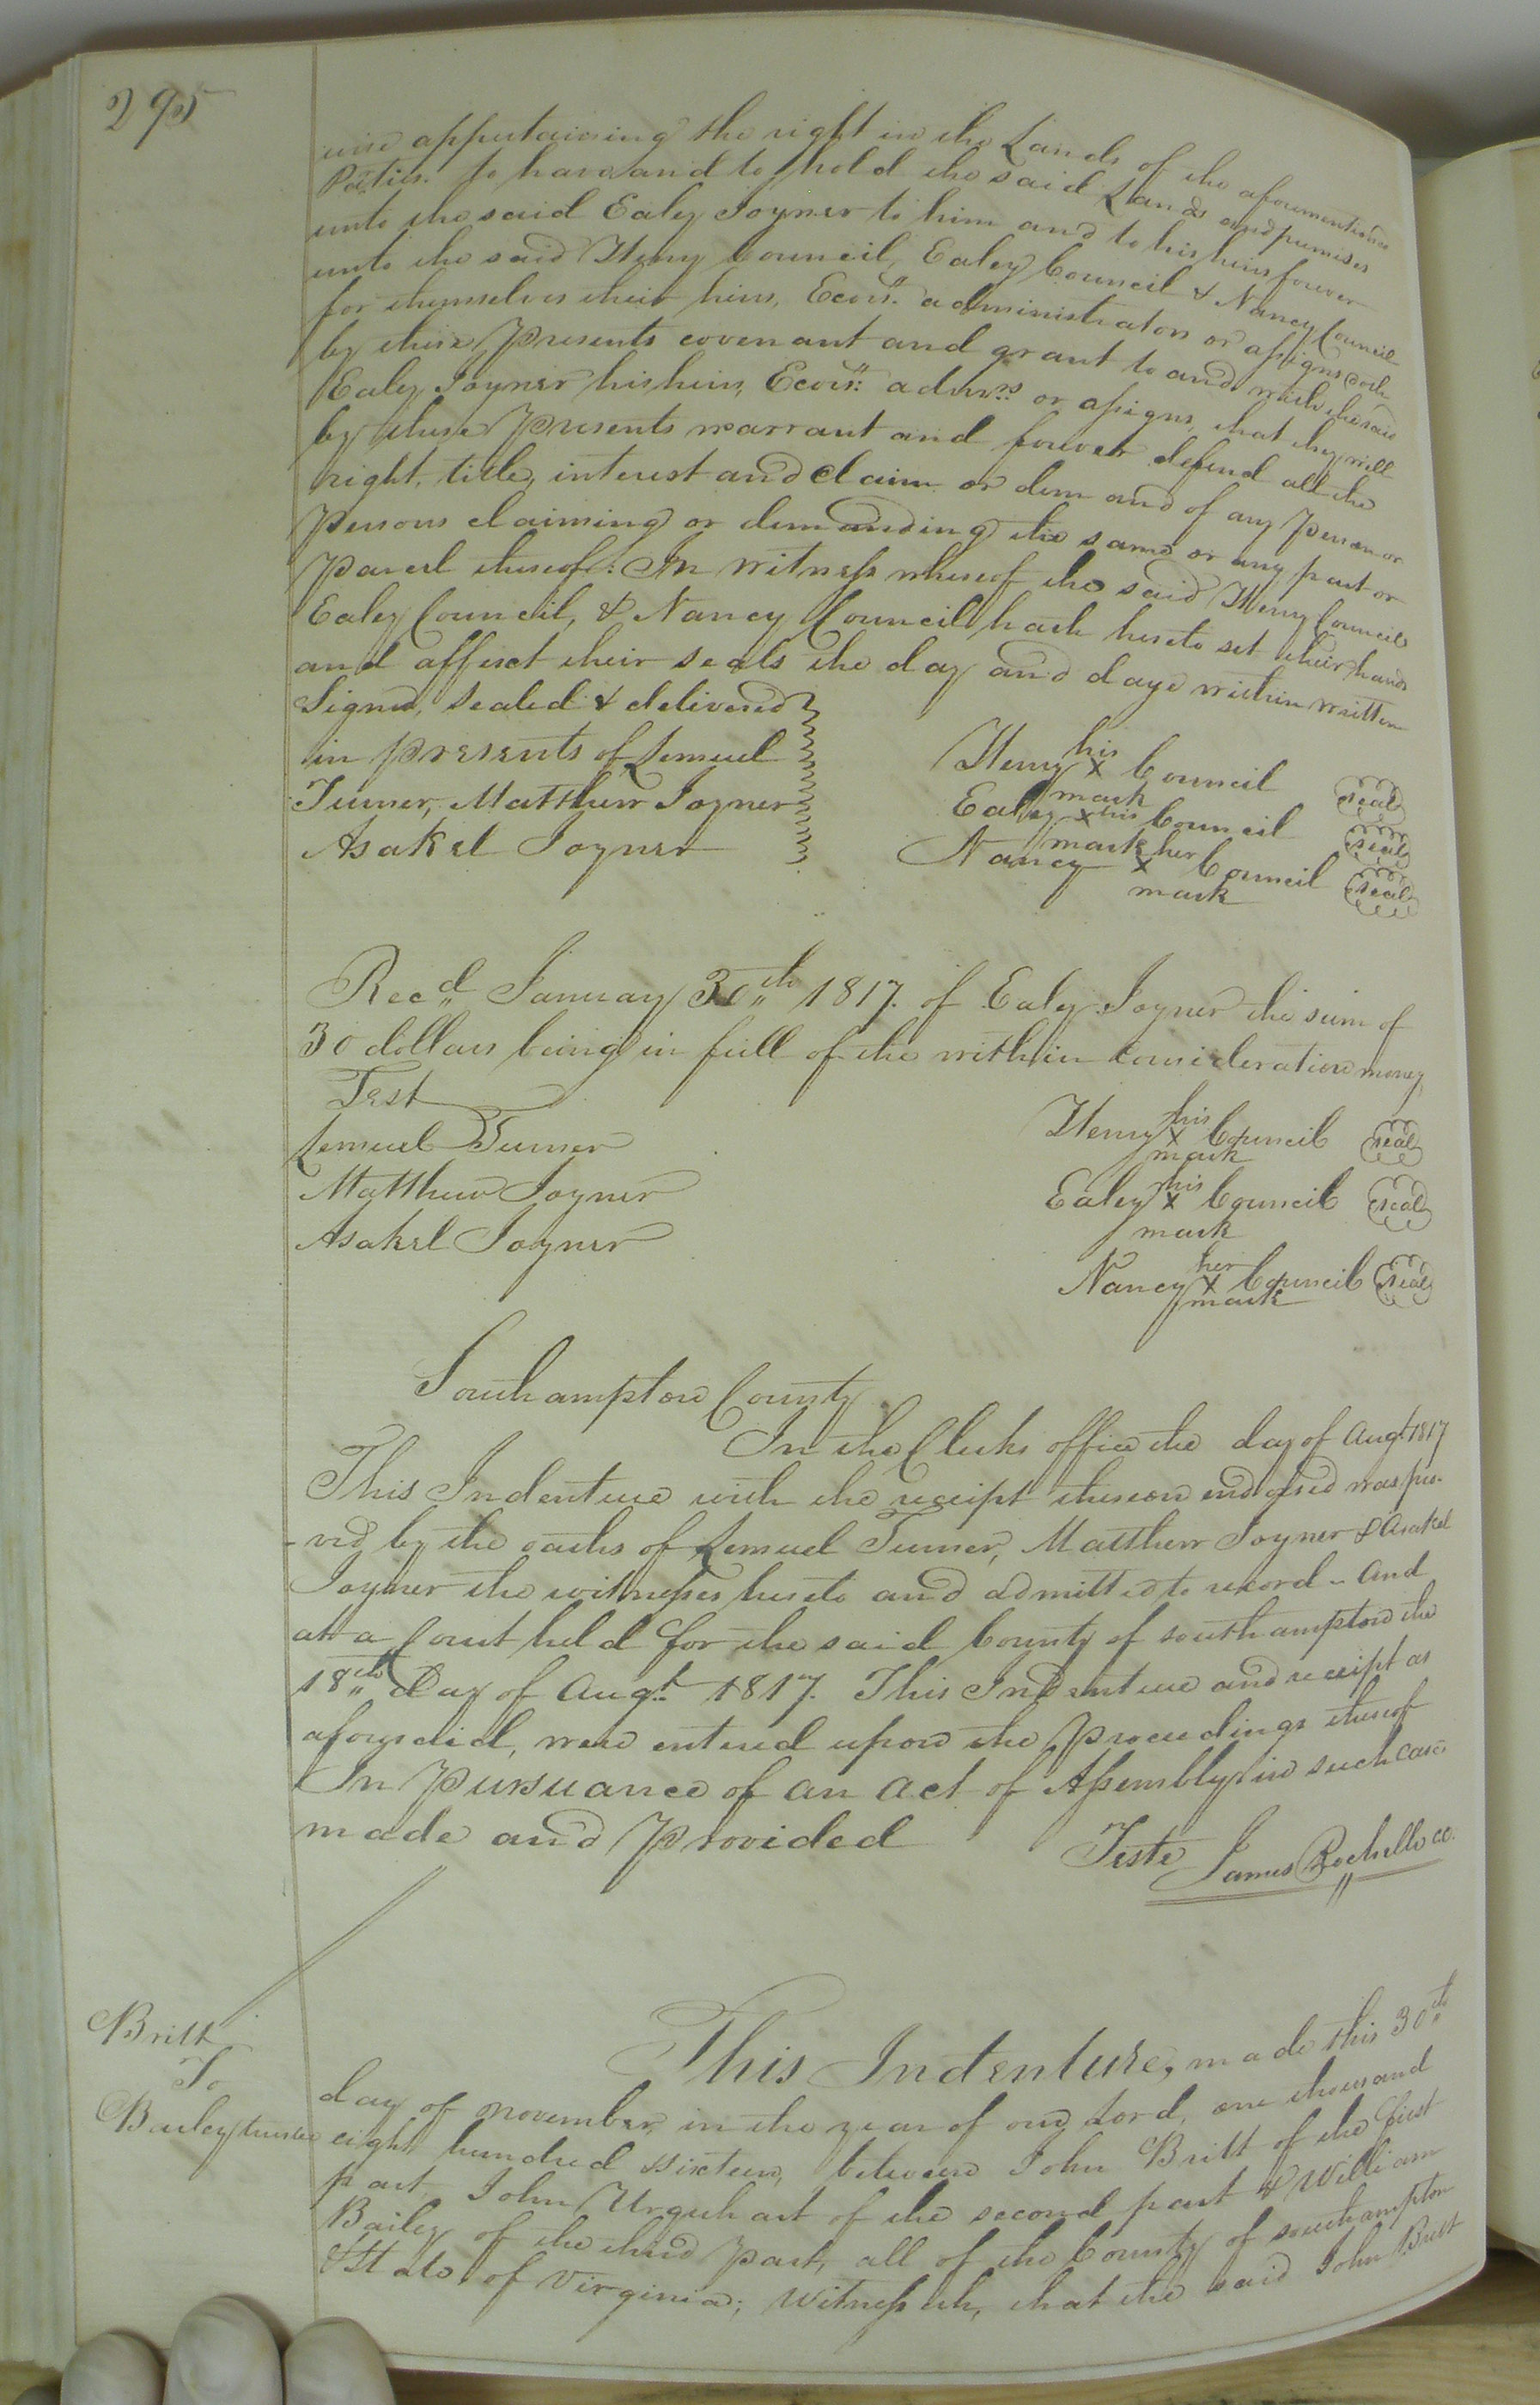 295
wise appertaining the right in the Lands of the aforementioned
Parties. To have and to hold the said Lands and premises
unto the said Ealey Joyner to him and to his heirs forever
unto the said Henry Council, Ealey Council & Nancy Council
for themselves their heirs, Ecors. administrators or assigns doth
by these Presents covenant and grant to and with the said
Ealey Joyner his heirs, Ecors. admrs. or assigns, that they will
by these Presents warrant and forever defend all the
right, title, interest and claim or demand of any Person or
Persons claiming or demanding the same or any part or
Parcel thereof. In witness whereof the said Henry Council
Ealey Council, & Nancy Council hath hereto set their hands
and affixt their seals the day and daye within written
Signed, sealed & delivered
in presents of Lemuel
Turner, Matthew Joyner
Asakel Joyner
Henry his X mark Council seal
Ealey his X mark Council seal
Nancy her X mark Council seal
Recd. January 30th 1817. of Ealey Joyner the sum of
30 dollars being in full of the within consideration money
Test
Lemuel Turner
Matthew Joyner
Asakel Joyner
Henry his X mark Council seal
Ealey his X mark Council seal
Nancy her X mark Council seal
Southampton County
In the Clerks office the day of Augt 1817
This Indenture with the receipt thereon endorsed was pro-
-ved by the oaths of Lemuel Turner, Matthew Joyner & Asakel
Joyner the witnesses hereto and admitted to record - And
at a Court held for the said County of southampton the
18th Day of Augt. 1817. This Indenture and receipt as
aforesaid, were entered upon the Proceedings thereof
In Pursuance of an act of Assembly in such case
made and Provided
Teste James Rochelle cc.
Britt
To
Bailey trustee
This Indenture, made this 30th
day of november, in the year of our Lord, one thousand
eight hundred sixteen, between John Britt of the first
part, John Urquhart of the second part & William
Bailey of the third Part, all of the County of southampton
& State of Virginia; Witnesseth, that the said John Britt